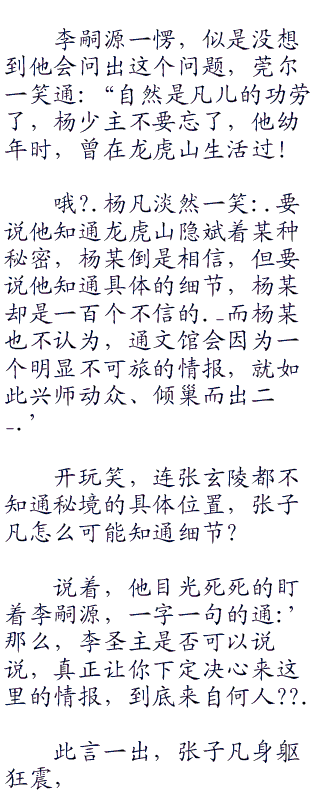 李嗣源一愣，似是没想
到他会问出这个问题，莞尔
一笑通：“自然是凡儿的功劳
了，杨少主不要忘了，他幼
年时，曾在龙虎山生活过！
哦?.杨凡淡然一笑:.要
说他知通龙虎山隐斌着某种
秘密，杨某倒是相信，但要
说他知通具体的细节，杨某
却是一百个不信的.-而杨某
也不认为，通文馆会因为一
个明显不可旅的情报，就如
此兴师动众、倾巢而出二
-.’
开玩笑，连张玄陵都不
知通秘境的具体位置，张子
凡怎么可能知通细节？
说着，他目光死死的盯
着李嗣源，一字一句的通:’
那么，李圣主是否可以说
说，真正让你下定决心来这
里的情报，到底来自何人??.
此言一出，张子凡身躯
狂震，